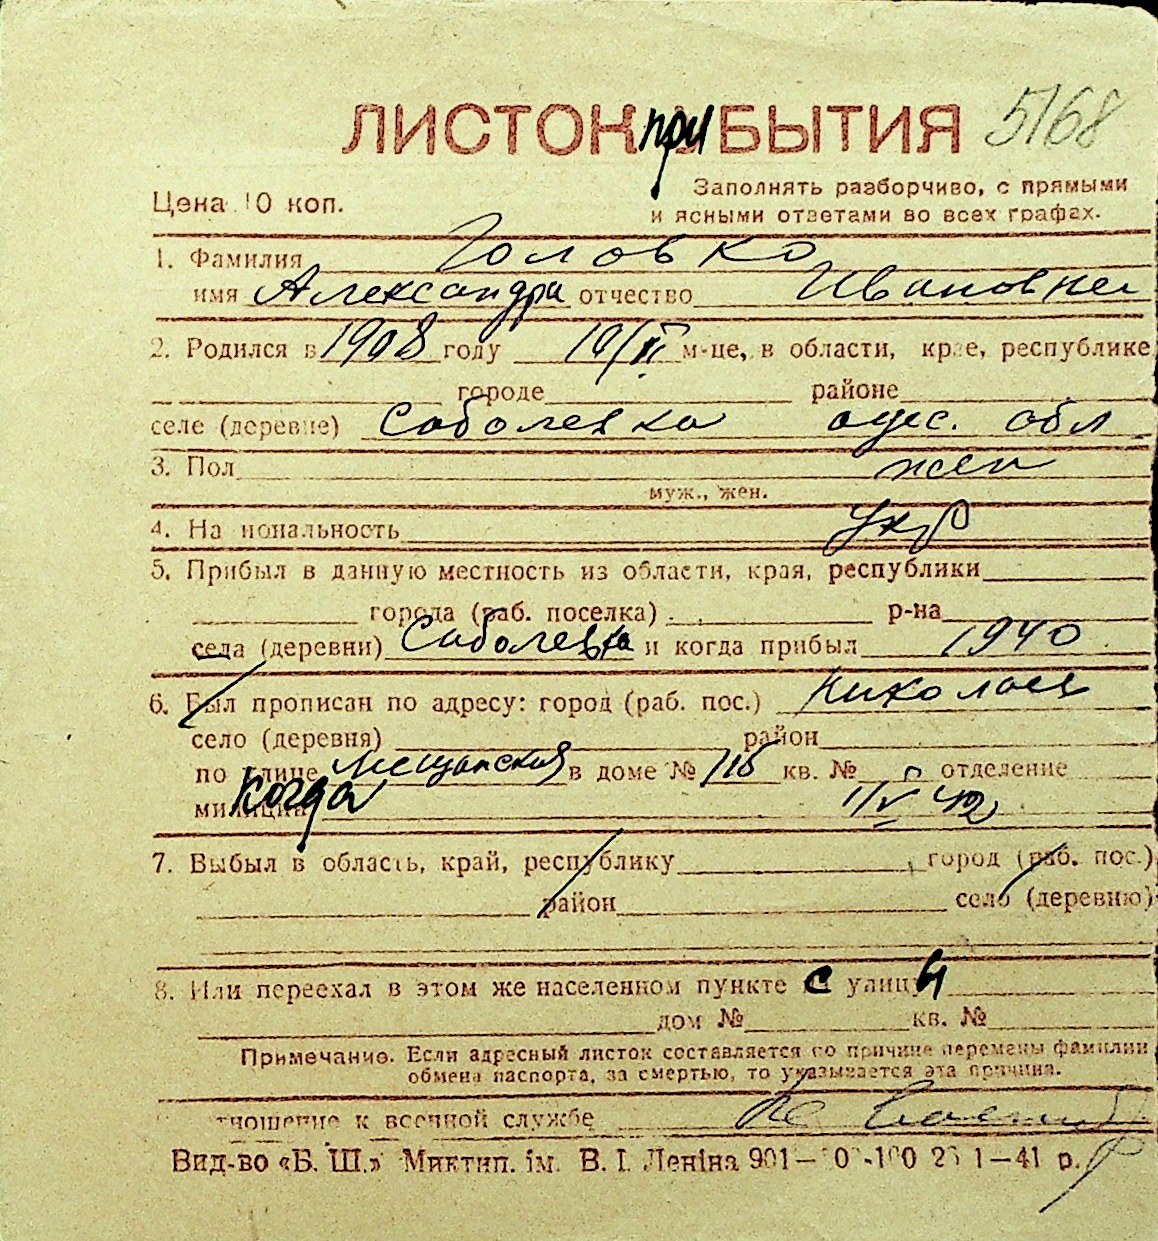 ЛИСТОК прибытия 5168
Цена 10 коп.
Заполнять разборчиво, с прямыми
и ясными ответами во всех графах.
1. Фамилия Головко
имя Александра отчество Ивановна
2. Родился в 1908 году 10/XI м-це, в области, крае, республике
городе районе
селе (деревне) Соболевка одес. обл
3. Пол жен
муж., жен.
4. Национальность Укр
5. Прибыл в данную местность из области, края, республики
города (раб. поселка) р-на
села (деревни) Соболевка и когда прибыл 1940
6. Был прописан по адресу: город (раб. пос.) Николаев
село (деревня) район
по улице Мещанская в доме № 115 кв. № отделение
милиции Когда 1/V 42
7. Выбыл в область, край, республику город (раб. пос.)
район село (деревню)
8. Или переехал в этом же населенном пункте с улицы
дом № кв. №
Примечание. Если адресный листок составляется по причине перемены фамилии
обмена паспорта, за смертью, то указывается эта причина.
Отношение к военной службе не
Вид-во «Б. Ш.» Миктип. ім. В. І. Леніна 1—41 р.